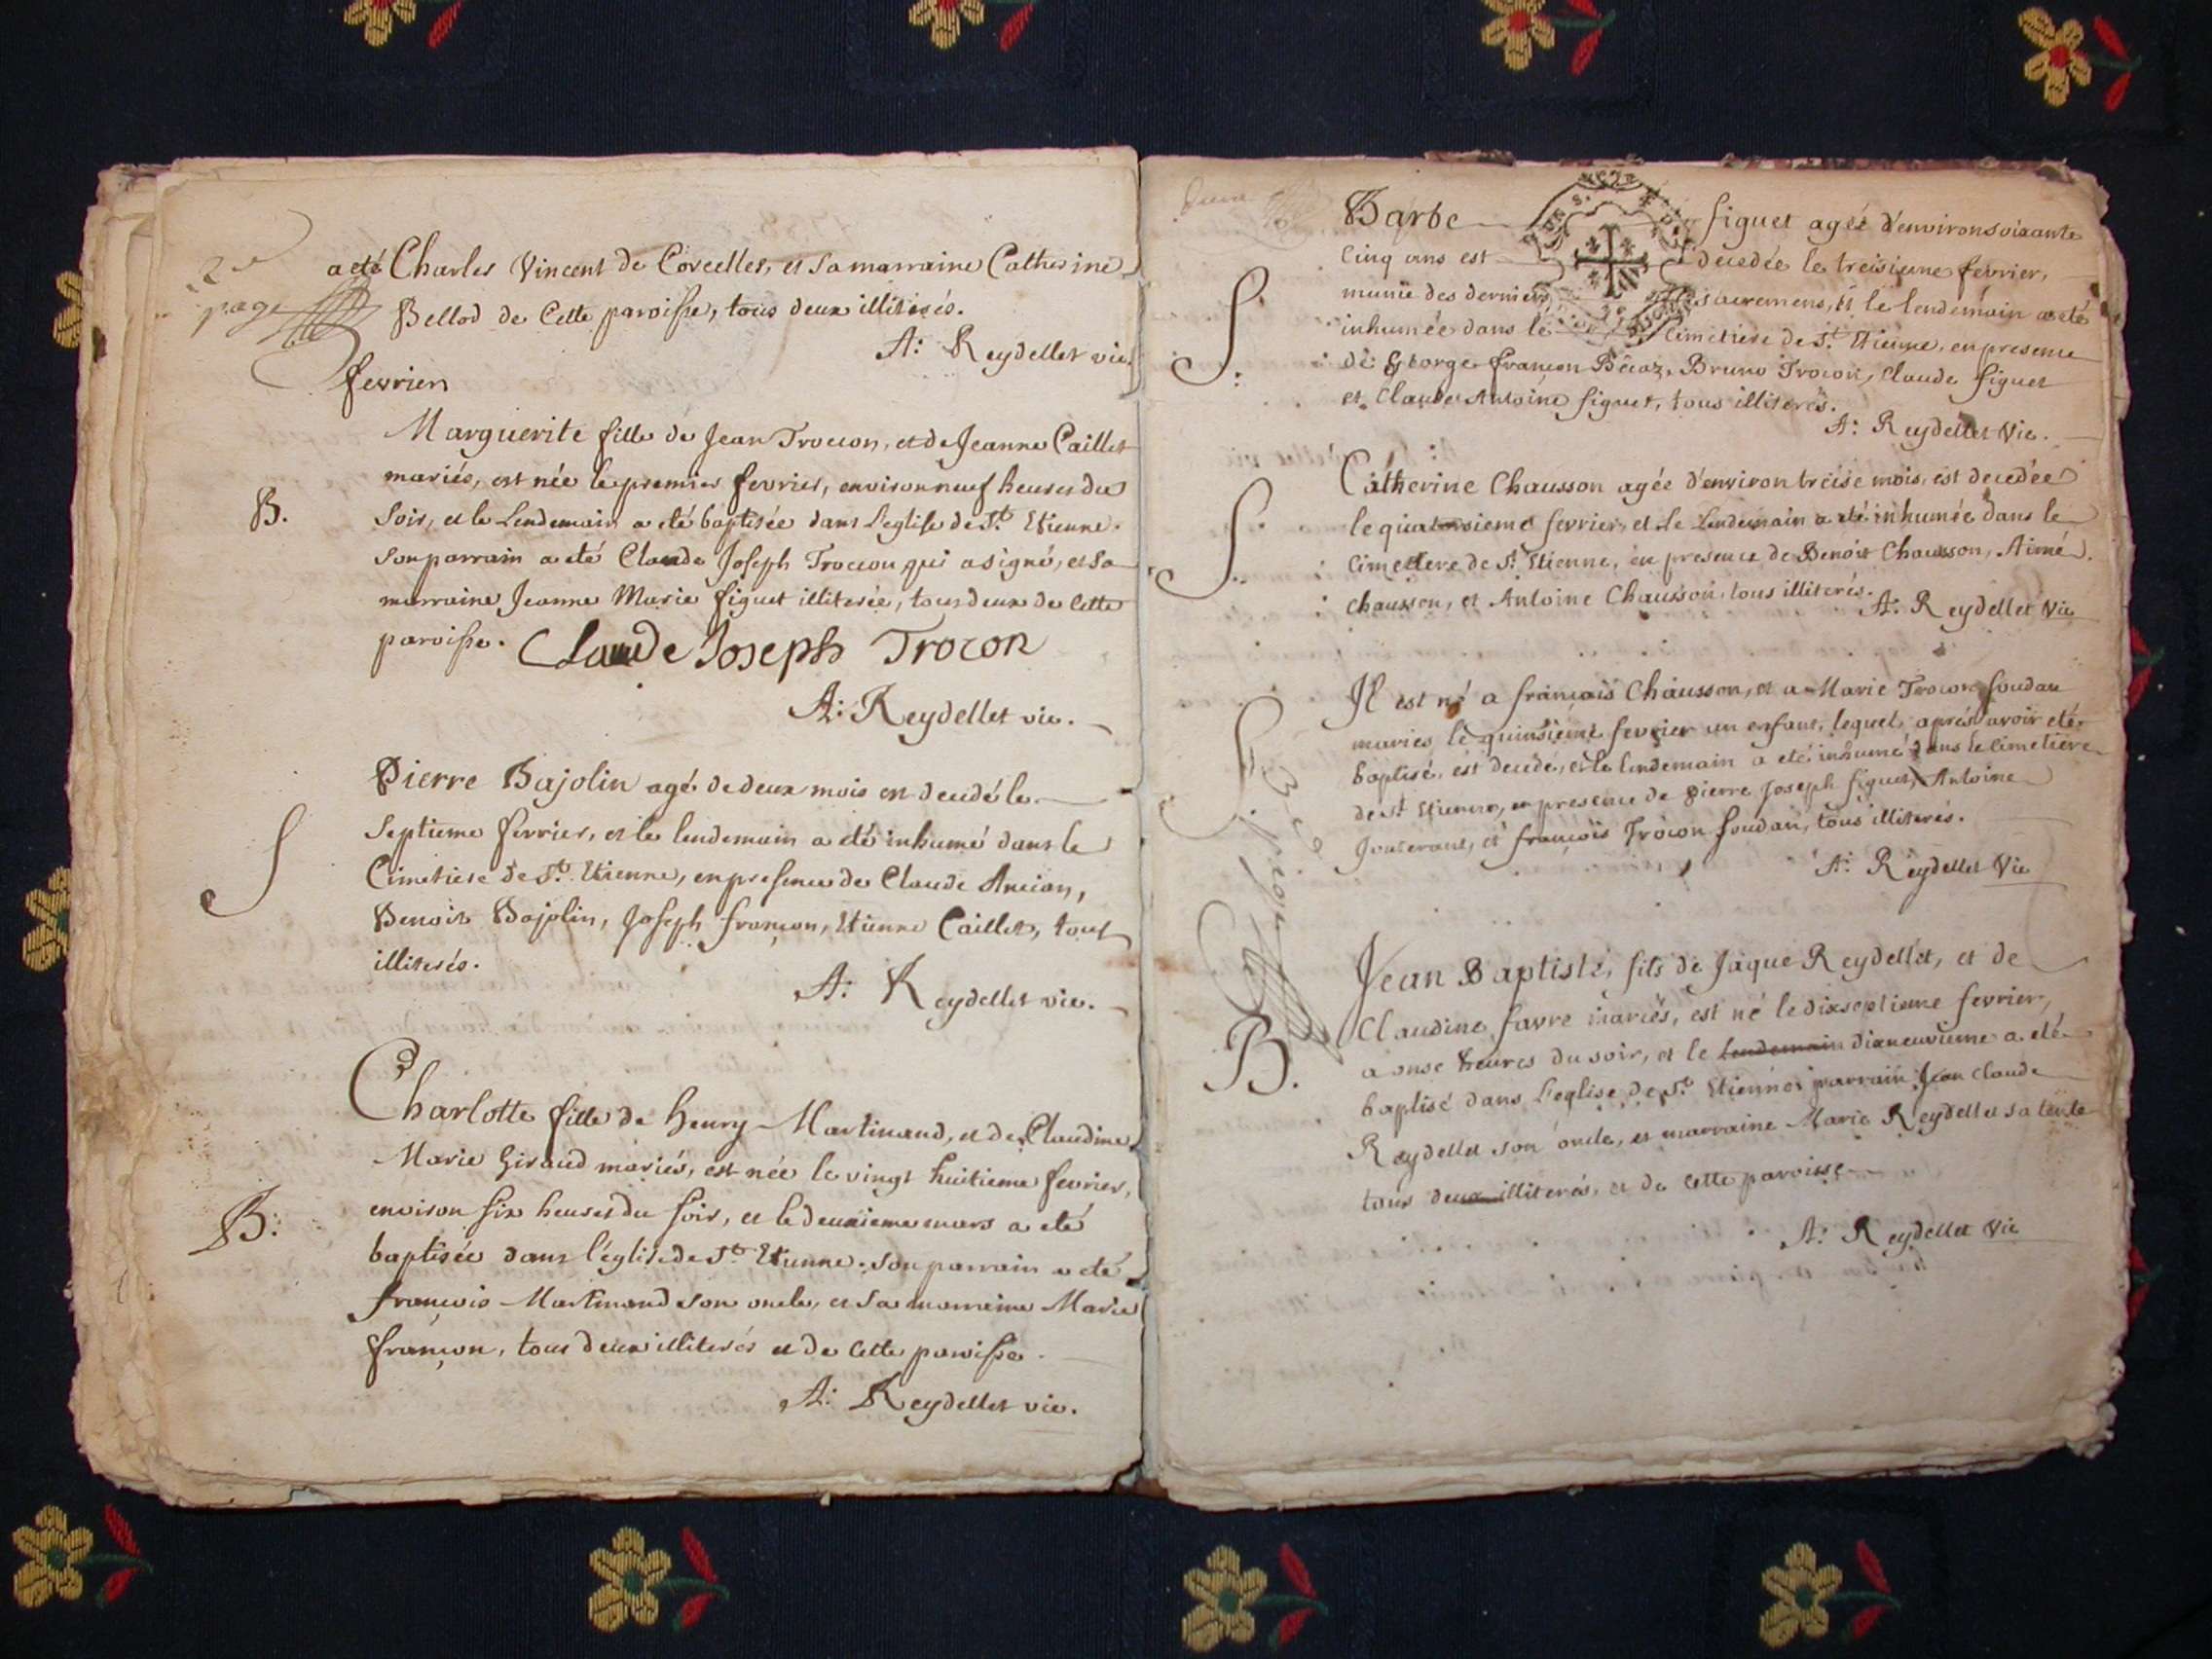 2e
page
a eté Charles Vincent de Corcelles, et sa marraine Catherine
Bellod de Cette paroisse, tous deux illiterés.
A: Reydellet vic.
fevrier
Marguerite fille de Jean Trocon, et de Jeanne Caillet
mariés, est née le premier fevrier, environ neuf heures du
B.
soir, et le Lendemain a eté baptisée dans L'eglise de St. Etienne.
son parrain a eté Claude Joseph Trocon qui a signé, et sa
marraine Jeanne Marie figuet illiterée, tous deux de Cette
paroisse. Claude Joseph Trocon
A: Reydellet vic.
Pierre Bajolin agé de deux mois est decedé le
S
septieme fevrier, et le lendemain a eté inhumé dans le
Cimetiere de St. Etienne, en presence de Claude Ancian,
Benoit Bajolin, Joseph françon, Etienne Caillet, tous
illiterés.
A: Reydellet vic.
Charlotte fille de henry Martinand, et de Claudine
Marie Giraud mariés, est née le vingt huitieme fevrier,
B:
environ six heures du soir, et le deuxieme mars a eté
baptisée dans l'église de St. Etienne. Son parrain a eté
françois Martinand son oncle, et sa marraine Marie
françon, tous deux illiterés et de Cette paroisse.
A: Reydellet vic.
Barbe figuet agée d'environ soixante
Cinq ans est decedée le treisieme fevrier,
munie des derniers sacremens, et le lendemain a eté
S.
inhumée dans le Cimetiere de St. Etienne, en presence
de George françon Bécaz, Bruno Trocon, Claude figuet
et Claude Antoine figuet, tous illiterés.
A: Reydellet Vic.
Catherine Chausson agée d'environ treise mois, est decedée
S.
le quatorsieme fevrier, et le Lendemain a eté inhumée dans le
Cimetiere de St. Etienne, en presence de Benoit Chausson, Aimé
chausson, et Antoine Chausson, tous illiterés.
A: Reydellet Vic
Il est né a françois Chausson, et a Marie Trocon soudan
S.
mariés le quinsieme fevrier un enfant, lequel après avoir eté
baptisé, est decedé, et le lendemain a eté inhumé dans le cimetiere
de St Etienne, en presence de pierre Joseph figuet, Antoine
Jouterant, et françois Trocon soudan, tous illiterés.
A: Reydellet Vic
3e page
Jean Baptiste, fils de Jaque Reydellet, et de
Claudine favre mariés, est né le dixseptieme fevrier,
B.
a onse heures du soir, et le lendemain dixneuvieme a eté
baptisé dans L'eglise de St. Etienne; parrain Jean Claude
Reydellet son oncle, et marraine Marie Reydellet sa tente
tous deux illiterés, et de Cette paroisse.
A: Reydellet Vic